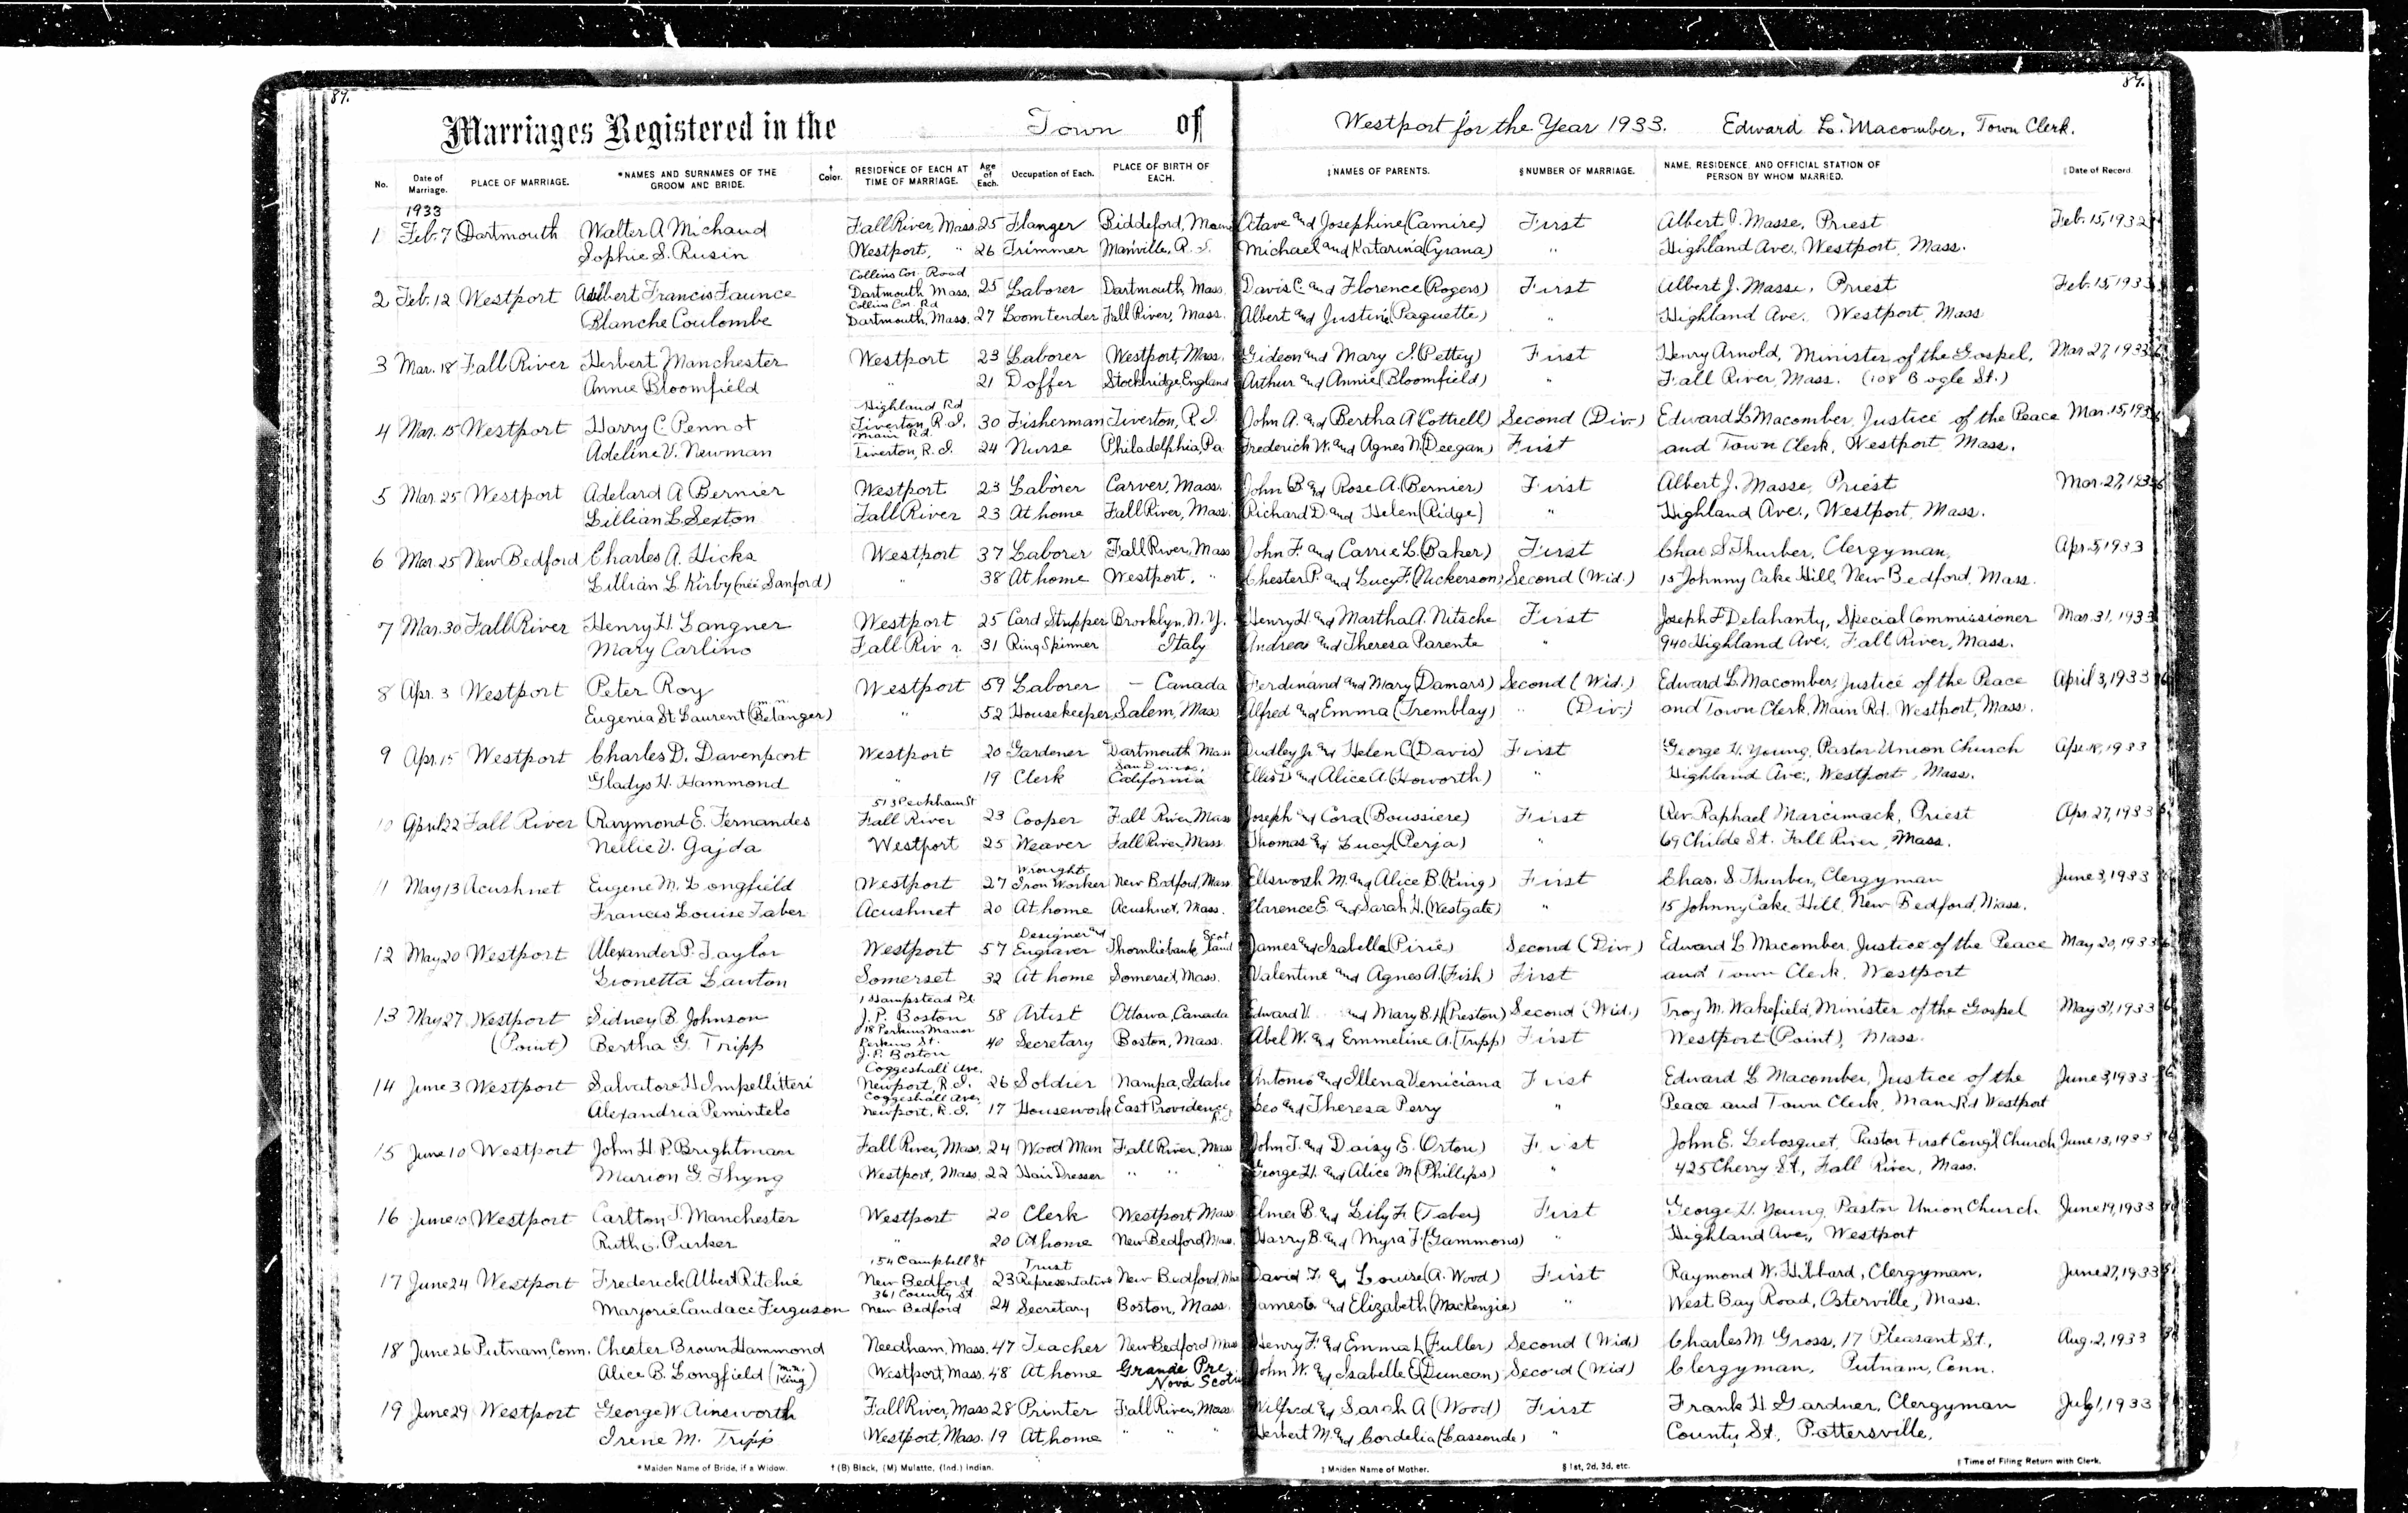 87.
87.
Marriages Registered in the Town of Westport for the Year 1933. Edward L. Macomber, Town Clerk.
No. Date of Marriage. PLACE OF MARRIAGE. *NAMES AND SURNAMES OF THE GROOM AND BRIDE. † Color. RESIDENCE OF EACH AT TIME OF MARRIAGE. Age of Each. Occupation of Each. PLACE OF BIRTH OF EACH. ‡NAMES OF PARENTS. §NUMBER OF MARRIAGE. NAME, RESIDENCE, AND OFFICIAL STATION OF PERSON BY WHOM MARRIED. Date of Record.
1933
1 Feb. 7 Dartmouth Walter A Michaud Fall River, Mass. 25 Flanger Biddeford, Maine Octave and Josephine (Camire) First Albert J. Masse, Priest Feb. 15, 1932
Sophie S. Rusin Westport, " 26 Trimmer Manville, R. I. Michael and Katarina (Cyrana) " Highland Ave., Westport, Mass.
Collins Cor. Road
2 Feb. 12 Westport Albert Francis Faunce Dartmouth Mass. 25 Laborer Dartmouth, Mass. Davis C. and Florence (Rogers) First Albert J. Masse, Priest Feb. 15, 1933
Collins Cor. Rd
Blanche Coulombe Dartmouth, Mass. 27 Loomtender Fall River, Mass. Albert and Justine (Paquette) " Highland Ave., Westport, Mass
3 Mar. 18 Fall River Herbert Manchester Westport 23 Laborer Westport, Mass. Gideon and Mary J. (Pettey) First Henry Arnold, Minister of the Gospel, Mar 27, 1933
Annie Bloomfield " 21 Doffer Stockbridge, England Arthur and Annie (Bloomfield) " Fall River, Mass. (108 Bogle St.)
Highland Rd
4 Mar. 15 Westport Harry C. Pennot Tiverton, R. I. 30 Fisherman Tiverton, R. I. John A. and Bertha A (Cottrell) Second (Div.) Edward L Macomber, Justice of the Peace Mar. 15, 1933
Main Rd.
Adeline V. Newman Tiverton, R. I. 24 Nurse Philadelphia, Pa. Frederick W. and Agnes N. (Deegan) First and Town Clerk, Westport, Mass.
5 Mar. 25 Westport Adelard A Bernier Westport 23 Laborer Carver, Mass. John B. and Rose A. (Bernier) First Albert J. Masse, Priest Mar. 27, 1933
Lillian L. Sexton Fall River 23 At home Fall River, Mass. Richard D. and Helen (Ridge) " Highland Ave., Westport, Mass.
6 Mar. 25 New Bedford Charles A. Hicks Westport 37 Laborer Fall River, Mass John F. and Carrie L. (Baker) First Chas S Thurber, Clergyman, Apr. 5, 1933
Lillian L. Kirby (née Sanford) " 38 At home Westport, " Chester P. and Lucy F. (Nickerson) Second (Wid.) 15 Johnny Cake Hill, New Bedford, Mass.
7 Mar. 30 Fall River Henry H. Langner Westport 25 Card Stripper Brooklyn, N. Y. Henry H. and Martha A. Nitsche First Joseph F Delahanty, Special Commissioner Mar. 31, 1933
Mary Carlino Fall Riv r. 31 Ring Spinner Italy Andrea and Theresa Parente " 940 Highland Ave., Fall River, Mass.
8 Apr. 3 Westport Peter Roy Westport 59 Laborer — Canada Ferdinand and Mary (Damars) Second (Wid.) Edward L. Macomber, Justice of the Peace April 3, 1933
m. n.
Eugenia St. Laurent (Belanger) " 52 Housekeeper Salem, Mass Alfred and Emma (Tremblay) " (Div.) and Town Clerk, Main Rd. Westport, Mass.
9 Apr. 15 Westport Charles D. Davenport Westport 20 Gardener Dartmouth Mass Dudley Jr. and Helen C (Davis) First George H. Young, Pastor Union Church Apr. 18, 1933
Gladys H. Hammond " 19 Clerk California Ellis and Alice A (Howorth) " Highland Ave., Westport, Mass.
513 Peckham St
10 April 22 Fall River Raymond E. Fernandes Fall River 23 Cooper Fall River Mass Joseph and Cora (Boussiere) First Rev. Raphael Marcimack, Priest Apr. 27, 1933
Nellie V. Gajda Westport 25 Weaver Fall River, Mass. Thomas and Lucy (Perja) " 69 Childe St. Fall River, Mass.
Wrought
11 May 13 Acushnet Eugene M. Longfield Westport 27 Iron Worker New Bedford, Mass. Ellsworth M. and Alice B. (King) First Chas. S Thurber, Clergyman June 3, 1933
Francis Louise Taber Acushnet 20 At home Acushnet, Mass. Clarence E. and Sarah H. (Westgate) " 15 Johnny Cake Hill, New Bedford, Mass.
Designer and Scot
12 May 20 Westport Alexander P. Taylor Westport 57 Engraver Thornliebank land James and Isabella (Pirie) Second (Div.) Edward L Macomber, Justice of the Peace May 20, 1933
Lionetta Lawton Somerset 32 At home Somerset, Mass. Valentine and Agnes A. (Fish) First and Town Clerk, Westport
1 Hampstead Pl.
13 May 27 Westport Sidney B. Johnson J. P. Boston 58 Artist Ottawa, Canada Edward V. and Mary B. H (Preston) Second (Wid.) Troy M. Wakefield, Minister of the Gospel May 31, 1933
18 Perkins Manor
(Point) Bertha G. Tripp Perkins St. 40 Secretary Boston, Mass. Abel W. and Emmeline A. (Tripp) First Westport (Point), Mass.
J. P. Boston
Coggeshall Ave.
14 June 3 Westport Salvatore H Impellitteri Newport, R. I. 26 Soldier Nampa, Idaho Antonio and Illena Veniciana First Edward L Macomber, Justice of the June 3, 1933
Coggeshall Ave.
Alexandria Pemintelo Newport, R. I. 17 Housework East Providence, R.I. Geo and Theresa Perry " Peace and Town Clerk, Main Rd Westport
15 June 10 Westport John H. P. Brightman Fall River, Mass. 24 Wood Man Fall River, Mass John T. and Daisy E. Orton) First John E. Lebosquet, Pastor First Cong'l Church June 13, 1933
Marion G. Thyng Westport, Mass. 22 Hair Dresser " " " George H. and Alice M (Phillips) " 425 Cherry St., Fall River, Mass.
16 June 10 Westport Carlton T. Manchester Westport 20 Clerk Westport Mass. Elmer B. and Lily F. (Taber) First George H. Young, Pastor Union Church June 19, 1933
Ruth G. Parker " 20 At home New Bedford, Mass. Harry B. and Myra F. (Gammons) " Highland Ave., Westport
154 Campbell St Trust
17 June 24 Westport Frederick Albert Ritchie New Bedford 23 Representative New Bedford, Mass David T. and Louise (A. Wood) First Raymond W. Hibbard, Clergyman, June 27, 1933
361 County St
Marjorie Candace Ferguson New Bedford 24 Secretary Boston, Mass. James and Elizabeth (MacKenzie) " West Bay Road, Osterville, Mass.
18 June 26 Putnam, Conn. Chester Brown Hammond Needham, Mass. 47 Teacher New Bedford Mass Henry F. and Emma L (Fuller) Second (Wid.) Charles M Gross, 17 Pleasant St., Aug. 2, 1933
Alice B. Longfield (m.n. King) Westport, Mass. 48 At home Grande Pre, Nova Scotia John W. and Isabelle E. (Duncan) Second (Wid) Clergyman, Putnam, Conn.
19 June 29 Westport George W. Ainsworth Fall River, Mass 28 Printer Fall River, Mass Wilfred and Sarah A (Wood) First Frank H Gardner, Clergyman July 1, 1933
Irene M. Tripp Westport, Mass. 19 At home " " " Herbert M. and Cordelia (Lassonde) " County St., Pottersville.
*Maiden Name of Bride, if a Widow. † (B) Black, (M) Mulatto, (Ind.) Indian. ‡ Maiden Name of Mother. § 1st, 2d, 3d, etc. Time of Filing Return with Clerk.